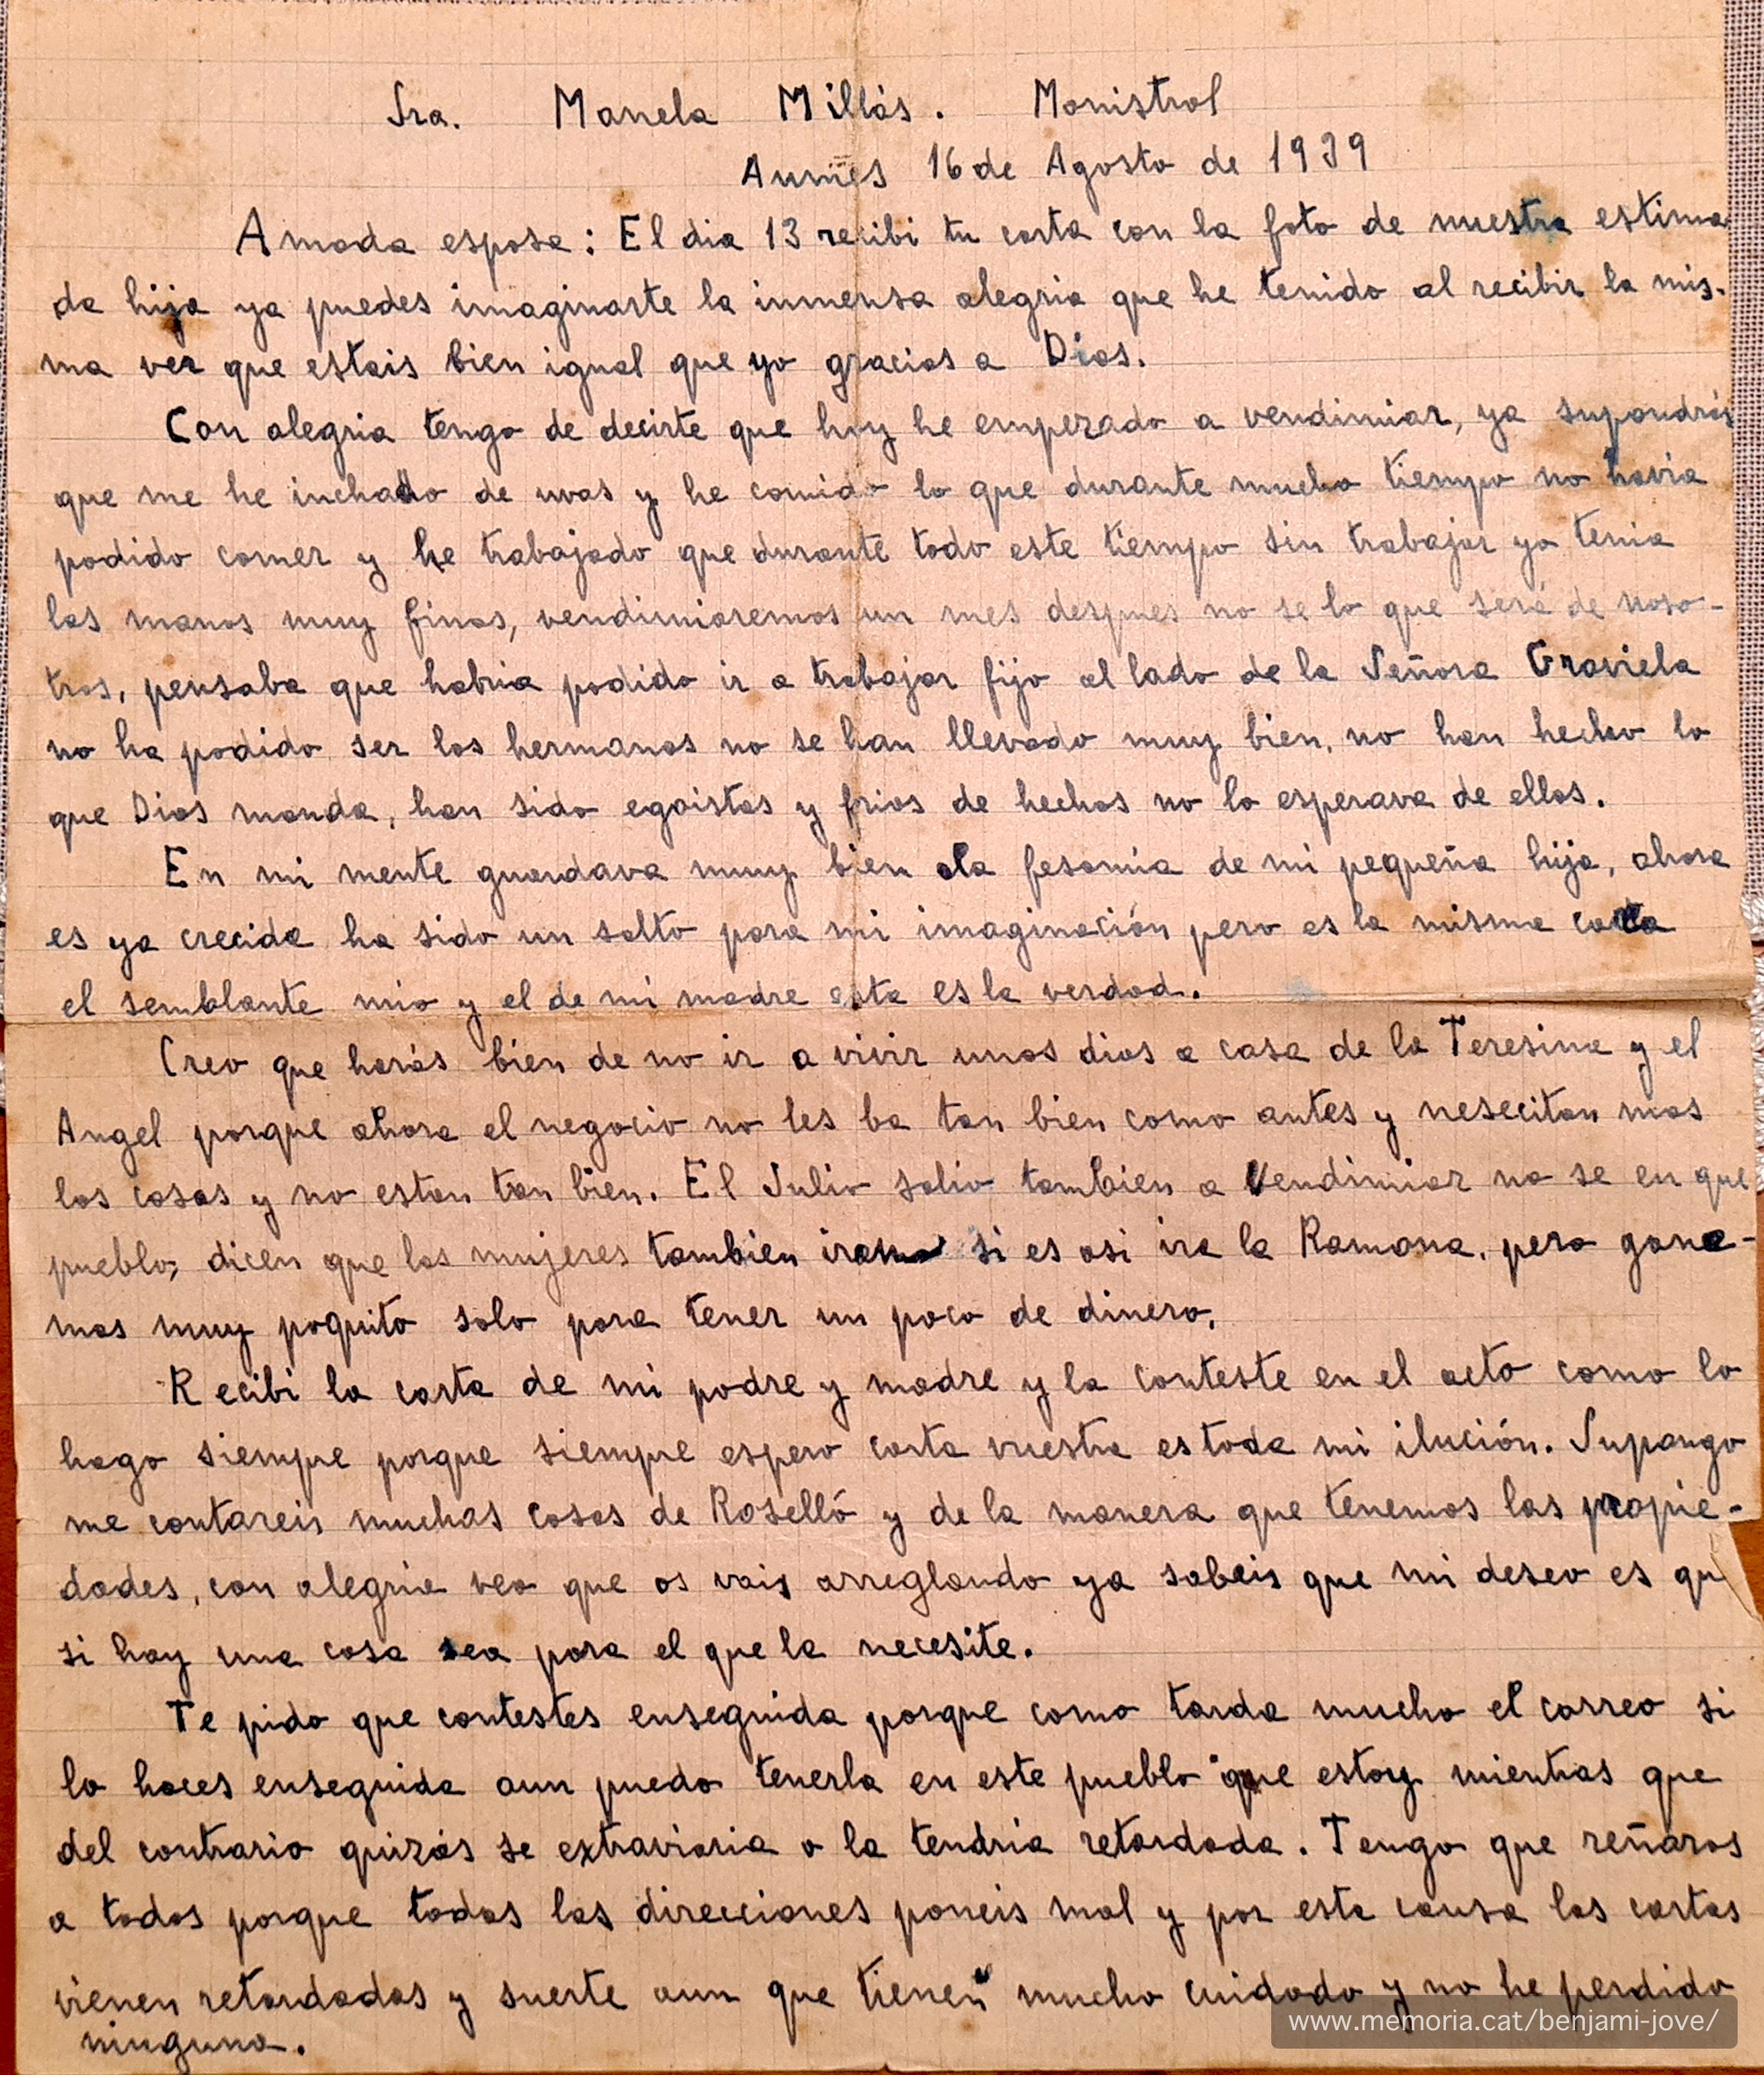 Sra. Manela Millás. Monistrol
Aumes 16 de Agosto de 1939
Amada esposa: El dia 13 recibi tu carta con la foto de nuestra estima
da hija ya puedes imaginarte la inmensa alegria que he tenido al recibir la mis-
ma ver que estais bien igual que yo gracias a Dios.
Con alegria tengo de decirte que hoy he empezado a vendimiar, ya supondrás
que me he inchado de uvas y he comido lo que durante mucho tiempo no havia
podido comer y he trabajado que durante todo este tiempo sin trabajar ya tenia
las manos muy finas, vendimiaremos un mes despues no se lo que será de noso-
tros, pensaba que habria podido ir a trabajar fijo al lado de la Señora Graviela
no ha podido ser los hermanos no se han llevado muy bien, no han hecho lo
que Dios manda, han sido egoistas y frios de hechos no lo esperava de ellos.
En mi mente guardava muy bien la fesomia de mi pequeña hija, ahora
es ya crecida ha sido un salto para mi imaginación pero es la misma cara
el semblante mio y el de mi madre esta es la verdad.
Creo que harás bien de no ir a vivir unos dias a casa de la Teresina y el
Angel porque ahora el negocio no les ba tan bien como antes y nesecitan mas
las cosas y no estan tan bien. El Julio salio tambien a Vendimiar no se en que
pueblo, dicen que las mujeres tambien iran si es asi ira la Ramona, pero gana-
mos muy poquito solo para tener un poco de dinero.
Recibi la carta de mi padre y madre y la conteste en el acto como lo
hago siempre porque siempre espero carta vuestra es toda mi ilución. Supongo
me contareis muchas cosas de Roselló y de la manera que tenemos las propie-
dades, con alegria veo que os vais arreglando ya sabeis que mi deseo es qu
si hay una cosa sea para el que la necesite.
Te pido que contestes enseguida porque como tarda mucho el correo si
lo haces enseguida aun puedo tenerla en este pueblo que estoy mientras que
del contrario quizás se extraviaria o la tendria retardada. Tengo que reñaros
a todos porque todas las direcciones poneis mal y por esta causa las cartas
vienen retardadas y suerte aun que tienen mucho cuidado y no he perdido
ninguna.
www.memoria.cat/benjami-jove/